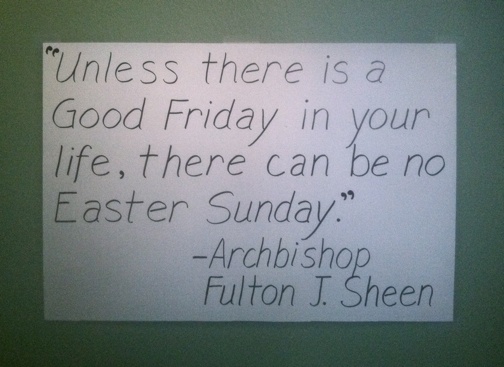 “Unless there is a
Good Friday in your
life, there can be no
Easter Sunday.”
-Archbishop
Fulton J. Sheen